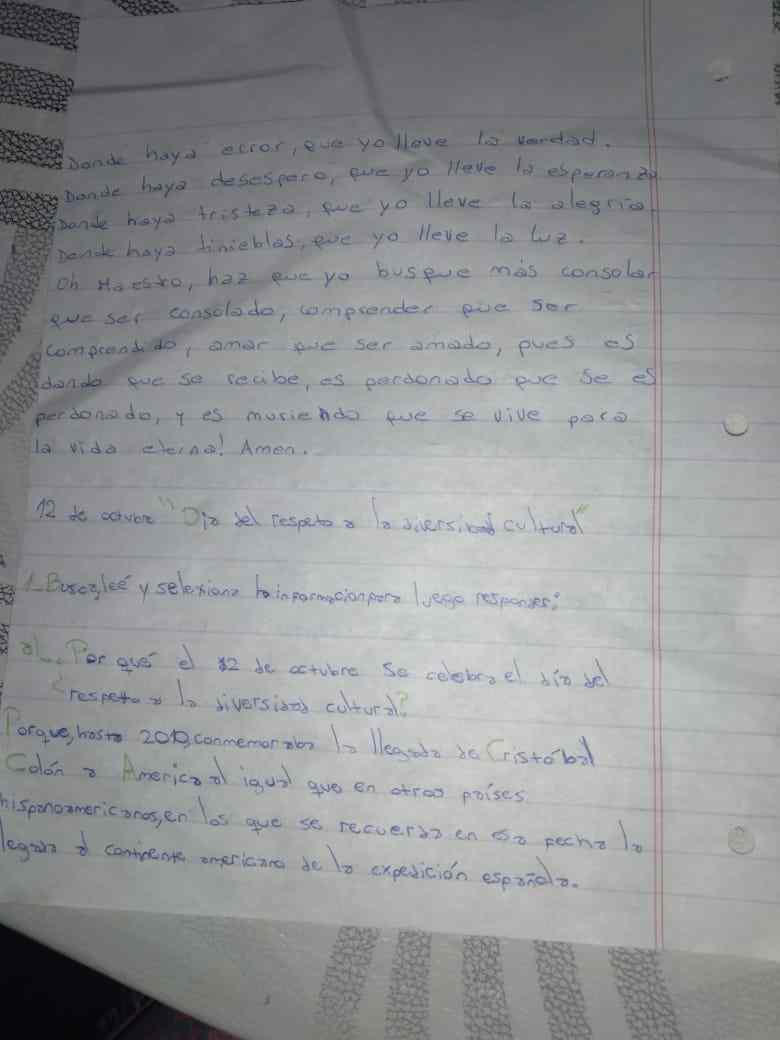 Donde haya error, que yo lleve la verdad.
Donde haya desespero, que yo lleve la esperanza
Donde haya tristeza, que yo lleve la alegria
Donde haya tinieblas, que yo lleve la luz.
Oh Maestro, haz que yo busque más consolar
que ser consolado, comprender que ser
comprendido, amar que ser amado, pues es
dando que se recibe, es perdonado que se es
perdonado, y es muriendo que se vive para
la vida eterna! Amen.
12 de octubre "Dia del respeto a la diversidad cultural"
1_Busca, leé y selexiona la informacion para luego responder:
a)_¿Por qué el 12 de octubre se celebra el día del
respeto a la diversidad cultural?
Porque, hasta 2010, conmemoraba la llegada de Cristóbal
Colón a America al igual que en otros países
hispanoamericanos, en los que se recuerda en esa fecha la
legada al continente americano de la expedición española.